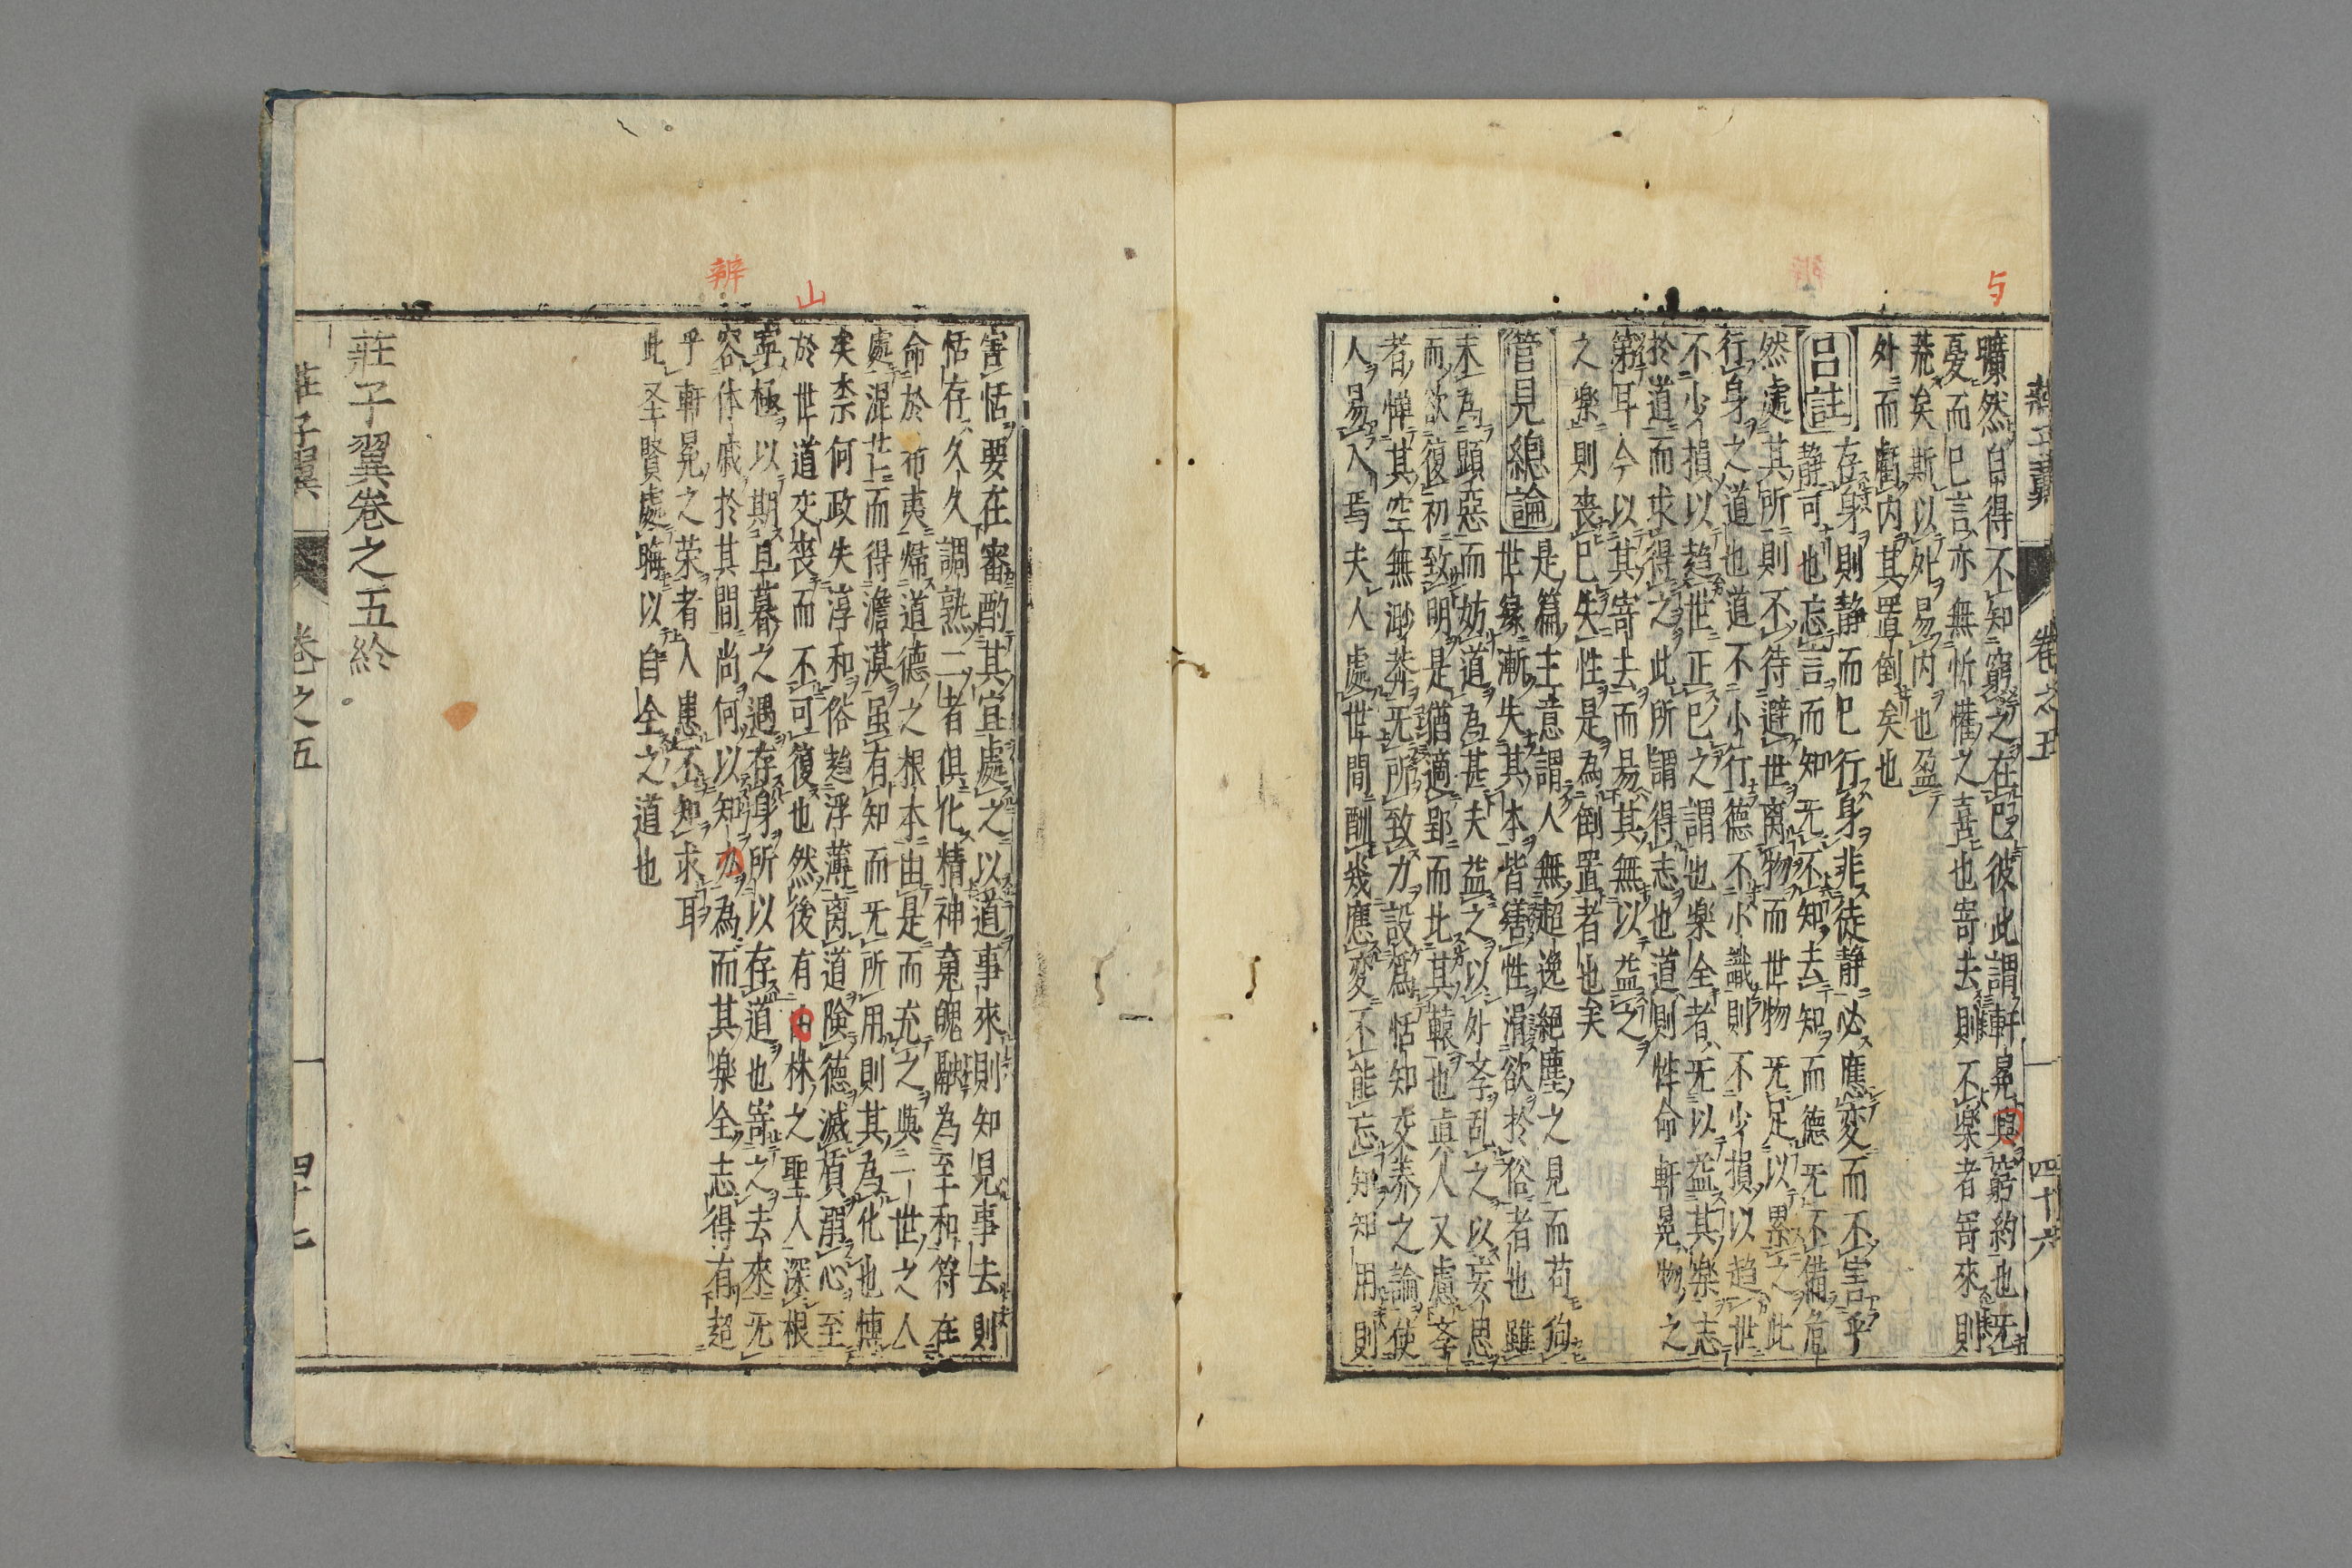 与
莊子翼 卷之五 四十六
曠然自得不知窮之在己彼此謂軒冕與窮約也无
憂而已言亦無忻懽之喜也寄去則不樂者寄來則
荒矣斯以外易内也盈
外而虧内其置倒矣也
呂註 存身則静而已行身非徒静必應変而不害乎
静可也忘言而知无不知去知而德无不備危
然處其所則不待避世离物而世物无足以累之此
行身之道也道不小行德不小識則不少損以趋世
不少損以趋世正己之謂也楽全者无以益其楽志
於道而求得之此所謂得志也道則性命軒冕物之
第耳今以其寄去而易其無以益之
之楽則喪己失性是為倒置者也矣
管見總論 是篇主意謂人無超逸絕塵之見而苟狥
世緣漸失其本皆繕性滑欲於俗者也雖
未為顕惡而妨道為甚夫益之以外紊乱之以妄思
而欲復初致明是猶適郢而北其轅也真人又慮学
者憚其空無渺莽无所致力設為恬知交養之論使
人易入焉夫人處世間酬幾應変不能忘知知用則
山
辨
害恬要在審酌其宜處之以道事來則知見事去則
恬存久久調熟二者俱化精神䰟魄融為至和符在
命於布夷歸道德之根本由是而充之與一世之人
處混芒而得澹漠虽有知而无所用則其為化也愽
矣柰何政失淳和俗趋浮薄离道険德滅質溺心至
於世道交喪而不可復也然後有由林之聖人深根
寧極以期旦暮之遇存身所以存道也寄之去來无
容休戚於其間尚何以知力為而其楽全志得有超
乎軒冕之荣者人患不知求耳
此圣賢處晦以自全之道也
莊子翼卷之五終
莊子翼 卷之五 四十七